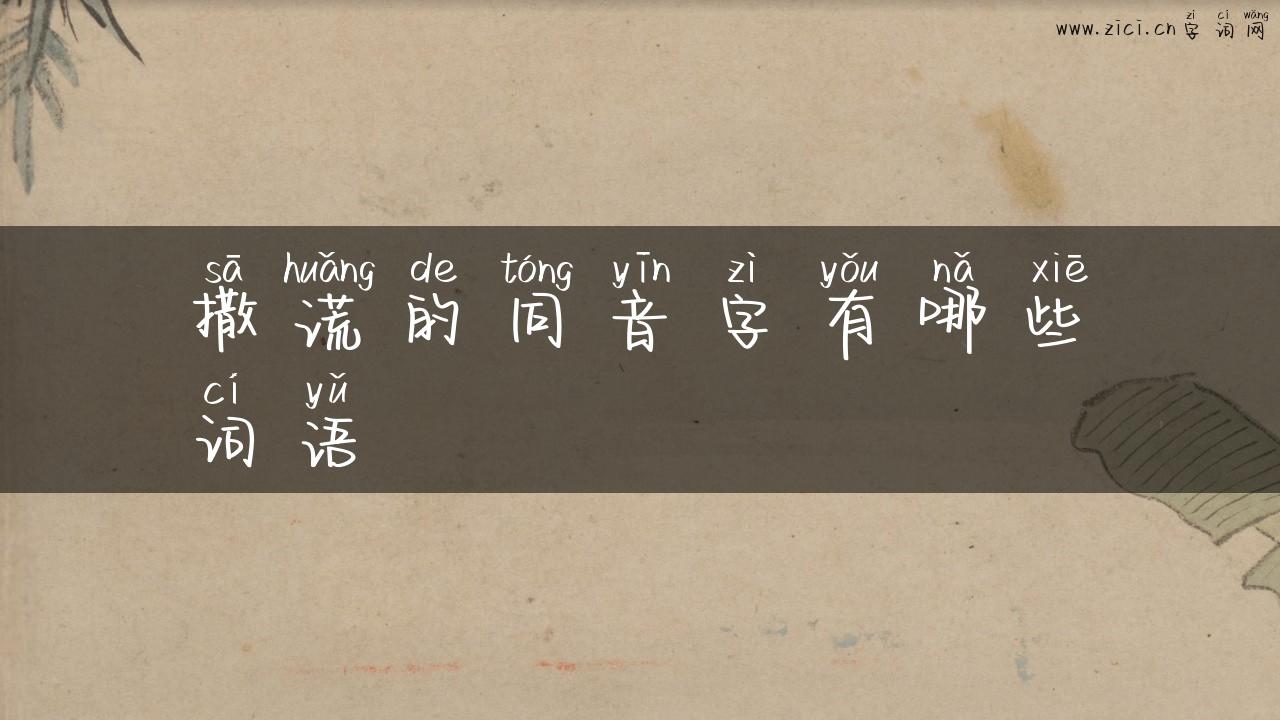 zì cí wǎng
www.zici.cn 字词网
sā huǎng de tóng yīn zì yǒu nǎ xiē
撒谎的同音字有哪些
cí yǔ
词语